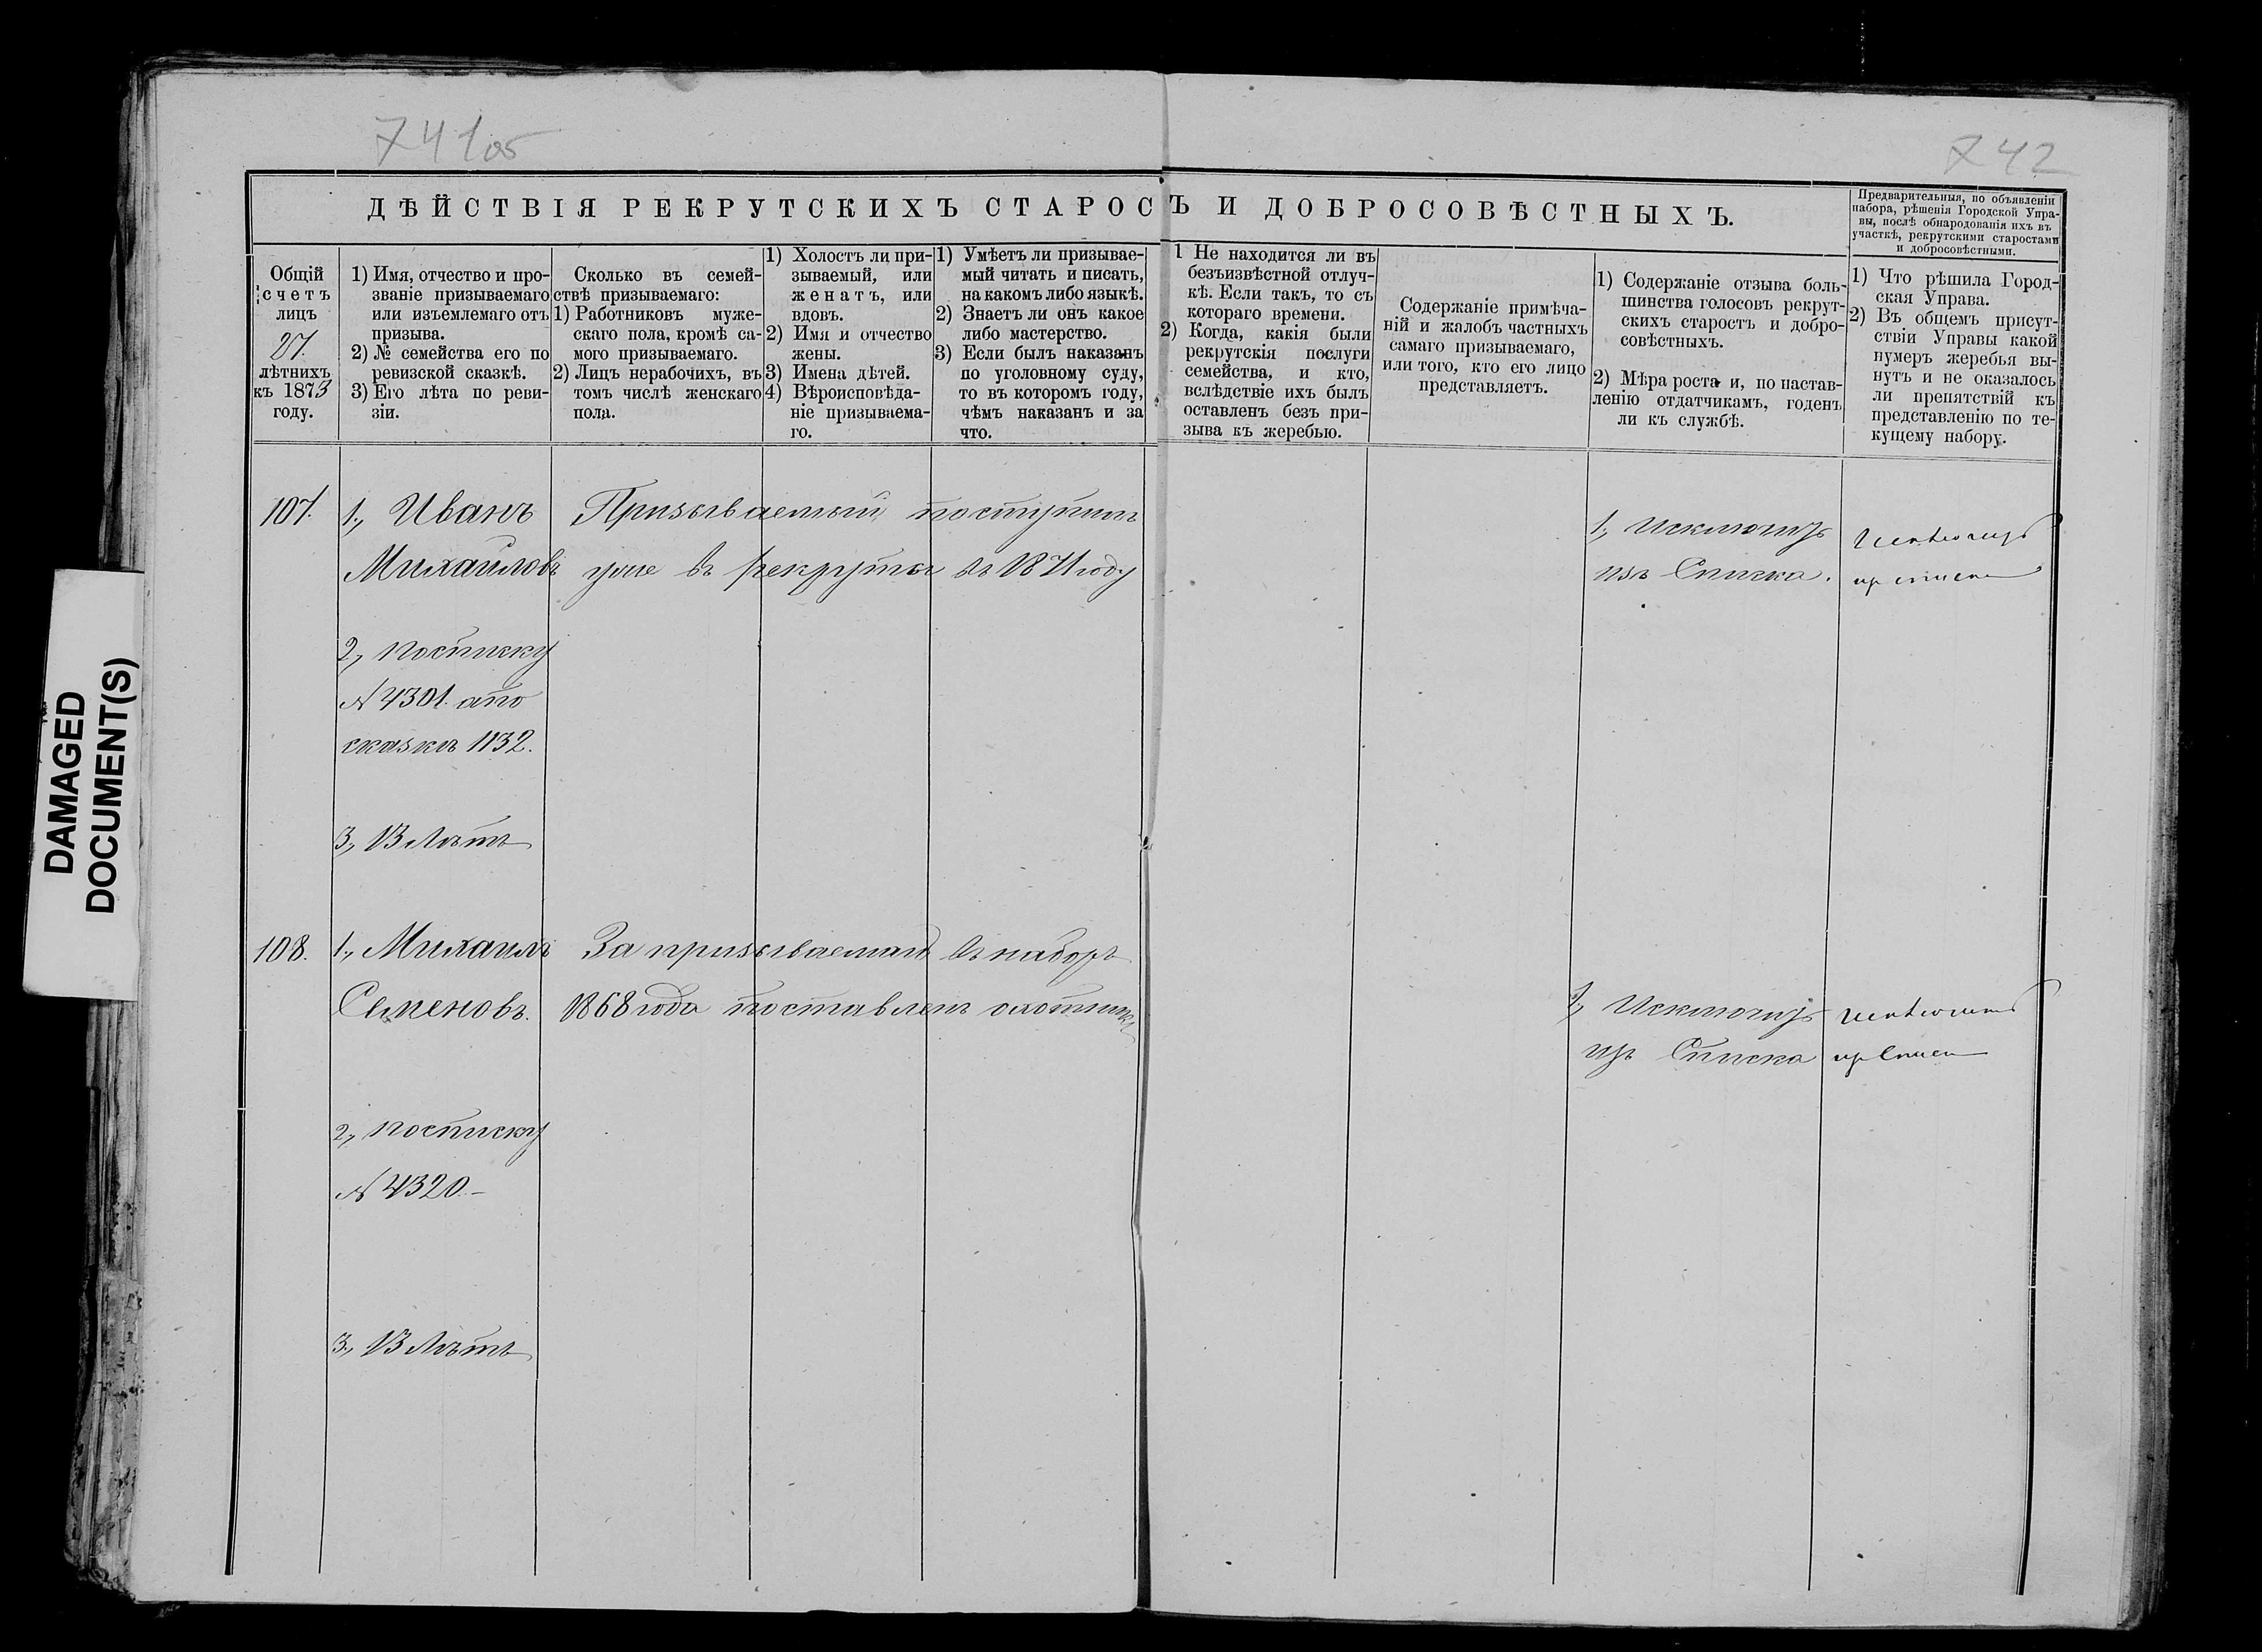 741 об
742
ДѢЙСТВІЯ РЕКРУТСКИХЪ СТАРОСТЪ И ДОБРОСОВѢСТНЫХЪ.
Предварительныя, по объявленіи
набора, рѣшенія Городской Упра-
вы, послѣ обнародованія ихъ въ
участкѣ, рекрутскими старостами
и добросовѣстными.
Общій
счетъ
лицъ
27.
лѣтнихъ
къ 1873
году.
1) Имя, отчество и про-
званіе призываемаго
или изъемлемаго отъ
призыва.
2) № семейства его по
ревизской сказкѣ.
3) Его лѣта по реви-
зіи.
Сколько въ семей-
ствѣ призываемаго:
1) Работниковъ муже-
скаго пола, кромѣ са-
мого призываемаго.
2) Лицъ нерабочихъ, въ
томъ числѣ женскаго
пола.
1) Холостъ ли при-
зываемый, или
женатъ, или
вдовъ.
2) Имя и отчество
жены.
3) Имена дѣтей.
4) Вѣроисповѣда-
ніе призываема-
го.
1) Умѣетъ ли призывае-
мый читать и писать,
на какомъ либо языкѣ.
2) Знаетъ ли онъ какое
либо мастерство.
3) Если былъ наказанъ
по уголовному суду,
то въ которомъ году,
чѣмъ наказанъ и за
что.
1 Не находится ли въ
безъизвѣстной отлуч-
кѣ. Если такъ, то съ
котораго времени.
2) Когда, какія были
рекрутскія послуги
семейства, и кто,
вслѣдствіе ихъ былъ
оставленъ безъ при-
зыва къ жеребью.
Содержаніе примѣча-
ній и жалобъ частныхъ
самаго призываемаго,
или того, кто его лицо
представляетъ.
1) Содержаніе отзыва боль-
шинства голосовъ рекрут-
скихъ старостъ и добро-
совѣстныхъ.
2) Мѣра роста и, по настав-
ленію отдатчикамъ, годенъ
ли къ службѣ.
1) Что рѣшила Город-
ская Управа.
2) Въ общемъ присут-
ствіи Управы какой
нумеръ жеребья вы-
нутъ и не оказалось
ли препятствій къ
представленію по те-
кущему набору.
107.
1., Иванъ
Михайловъ
2., по списку
№ 4301. а по
сказкѣ 1132.
3., 13 Лѣтъ
Призываемый поступилъ
уже въ рекруты въ 1871 году
1., Исключить
изъ Списка.
Исключить
из списка
108.
1., Михаилъ
Семеновъ.
2., по списку
№ 4320.–
3., 13 Лѣтъ
За призываемаго въ наборъ
1868 года поставленъ охотникъ
1., Исключить
изъ Списка
исключить
из Списка
DAMAGED
DOCUMENT(S)